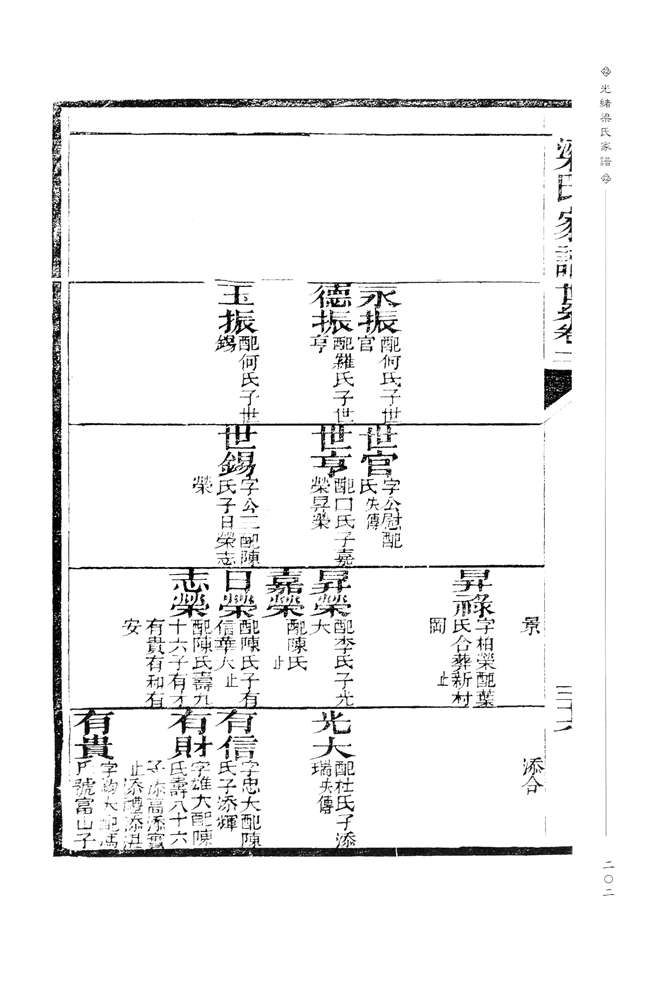 光緒梁氏家譜
梁氏家譜世系卷二
三十六
二〇二
永振
配何氏子世
官
德振
配羅氏子世
亨
玉振
配何氏子世
錫
世官
字公慰配
氏失傳
世亨
配口氏子嘉
榮昇榮
世錫
字公三配陳
氏子日榮志
榮
景
昇祿
字柏榮配葉
氏合葬新村
岡
止
昇榮
配李氏子光
大
嘉榮
配陳氏
止
日榮
配陳氏子有
信華大止
志榮
配陳氏壽九
十六子有才
有貴有和有
安
添合
光大
配杜氏子添
瑞失傳
有信
字忠大配陳
氏子添輝
有財
字雄大配陳
氏壽八十六
子添高添實
止添禮添湛
有貴
字鈞大配馮
氏號富山子